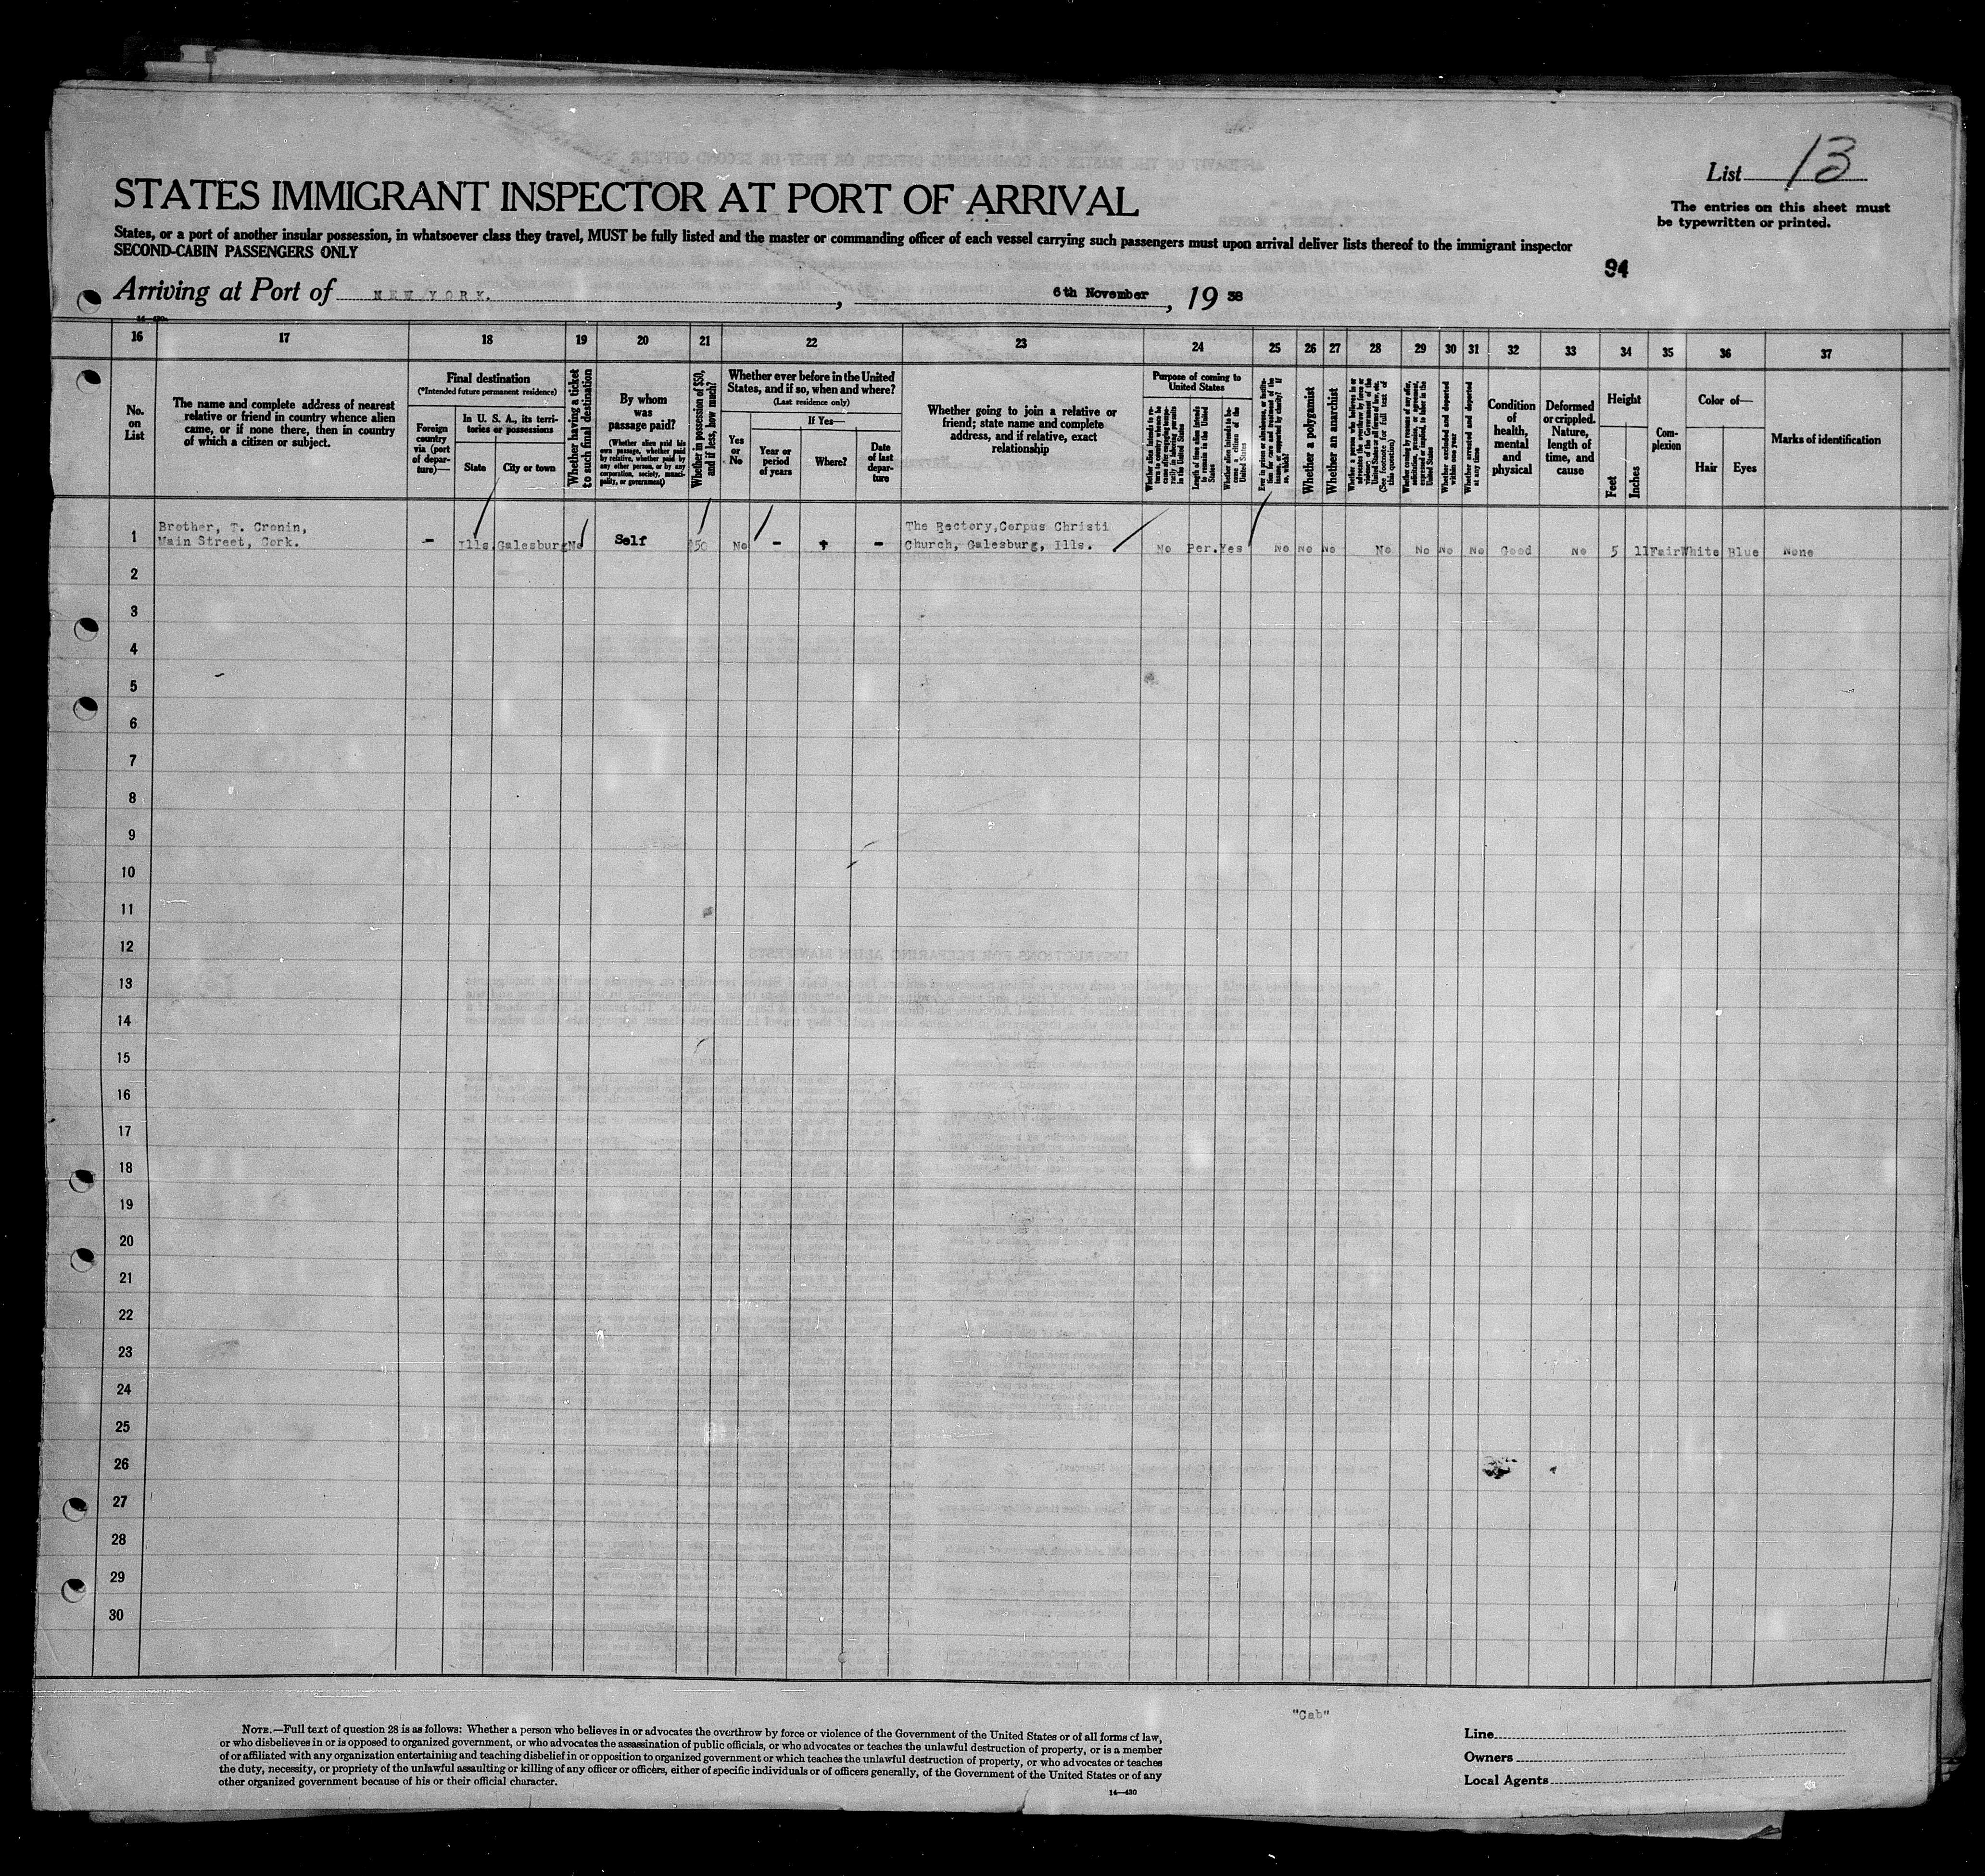 List 13
The entries on this sheet must
be typewritten or printed.
STATES IMMIGRANT INSPECTOR AT PORT OF ARRIVAL
States, or a port of another insular possession, in whatsoever class they travel, MUST be fully listed and the master or commanding officer of each vessel carrying such passengers must upon arrival deliver lists thereof to the immigrant inspector
SECOND-CABIN PASSENGERS ONLY
94
Arriving at Port of NEW YORK. , 6th November , 19 38
16 17 18 19 20 21 22 23 24 25 26 27 28 29 30 31 32 33 34 35 36 37
No.
on
List
The name and complete address of nearest
relative or friend in country whence alien
came, or if none there, then in country
of which a citizen or subject.
Final destination
(*Intended future permanent residence)
Foreign
country
via (port
of depar-
ture)—
In U. S. A., its terri-
tories or possessions
State
City or town
Whether having a ticket
to such final destination
By whom
was
passage paid?
(Whether alien paid his
own passage, whether paid
by relative, whether paid by
any other person, or by any
corporation, society, munici-
pality, or government)
Whether in possession of $50,
and if less, how much?
Whether ever before in the United
States, and if so, when and where?
(Last residence only)
Yes
or
No
If Yes—
Year or
period
of years
Where?
Date
of last
depar-
ture
Whether going to join a relative or
friend; state name and complete
address, and if relative, exact
relationship
Purpose of coming to
United States
Whether alien intends to re-
turn to country whence he
came after engaging tempo-
rarily in laboring pursuits
in the United States
Length of time alien intends
to remain in the United
States
Whether alien intends to be-
come a citizen of the
United States
Ever in prison or almshouse, or institu-
tion for care and treatment of the
insane, or supported by charity? If
so, which?
Whether a polygamist
Whether an anarchist
Whether a person who believes in or
advocates the overthrow by force or
violence of the Government of the
United States or all forms of law, etc.
(See footnote for full text of
this question)
Whether coming by reason of any offer,
solicitation, promise, or agreement,
expressed or implied, to labor in the
United States
Whether excluded and deported
within one year
Whether arrested and deported
at any time
Condition
of
health,
mental
and
physical
Deformed
or crippled.
Nature,
length of
time, and
cause
Height
Feet
Inches
Com-
plexion
Color of—
Hair
Eyes
Marks of identification
1 Brother, T. Cronin,
Main Street, Cork. - Ills. Galesburg No Self $50 No - - - The Rectory, Corpus Christi
Church, Galesburg, Ills. No Per. Yes No No No No No No No Good No 5 11 Fair White Blue None
2
3
4
5
6
7
8
9
10
11
12
13
14
15
16
17
18
19
20
21
22
23
24
25
26
27
28
29
30
"Cab"
NOTE.—Full text of question 28 is as follows: Whether a person who believes in or advocates the overthrow by force or violence of the Government of the United States or of all forms of law,
or who disbelieves in or is opposed to organized government, or who advocates the assassination of public officials, or who advocates or teaches the unlawful destruction of property, or is a member
of or affiliated with any organization entertaining and teaching disbelief in or opposition to organized government or which teaches the unlawful destruction of property, or who advocates or teaches
the duty, necessity, or propriety of the unlawful assaulting or killing of any officer or officers, either of specific individuals or of officers generally, of the Government of the United States or of any
other organized government because of his or their official character.
14—430
Line
Owners
Local Agents